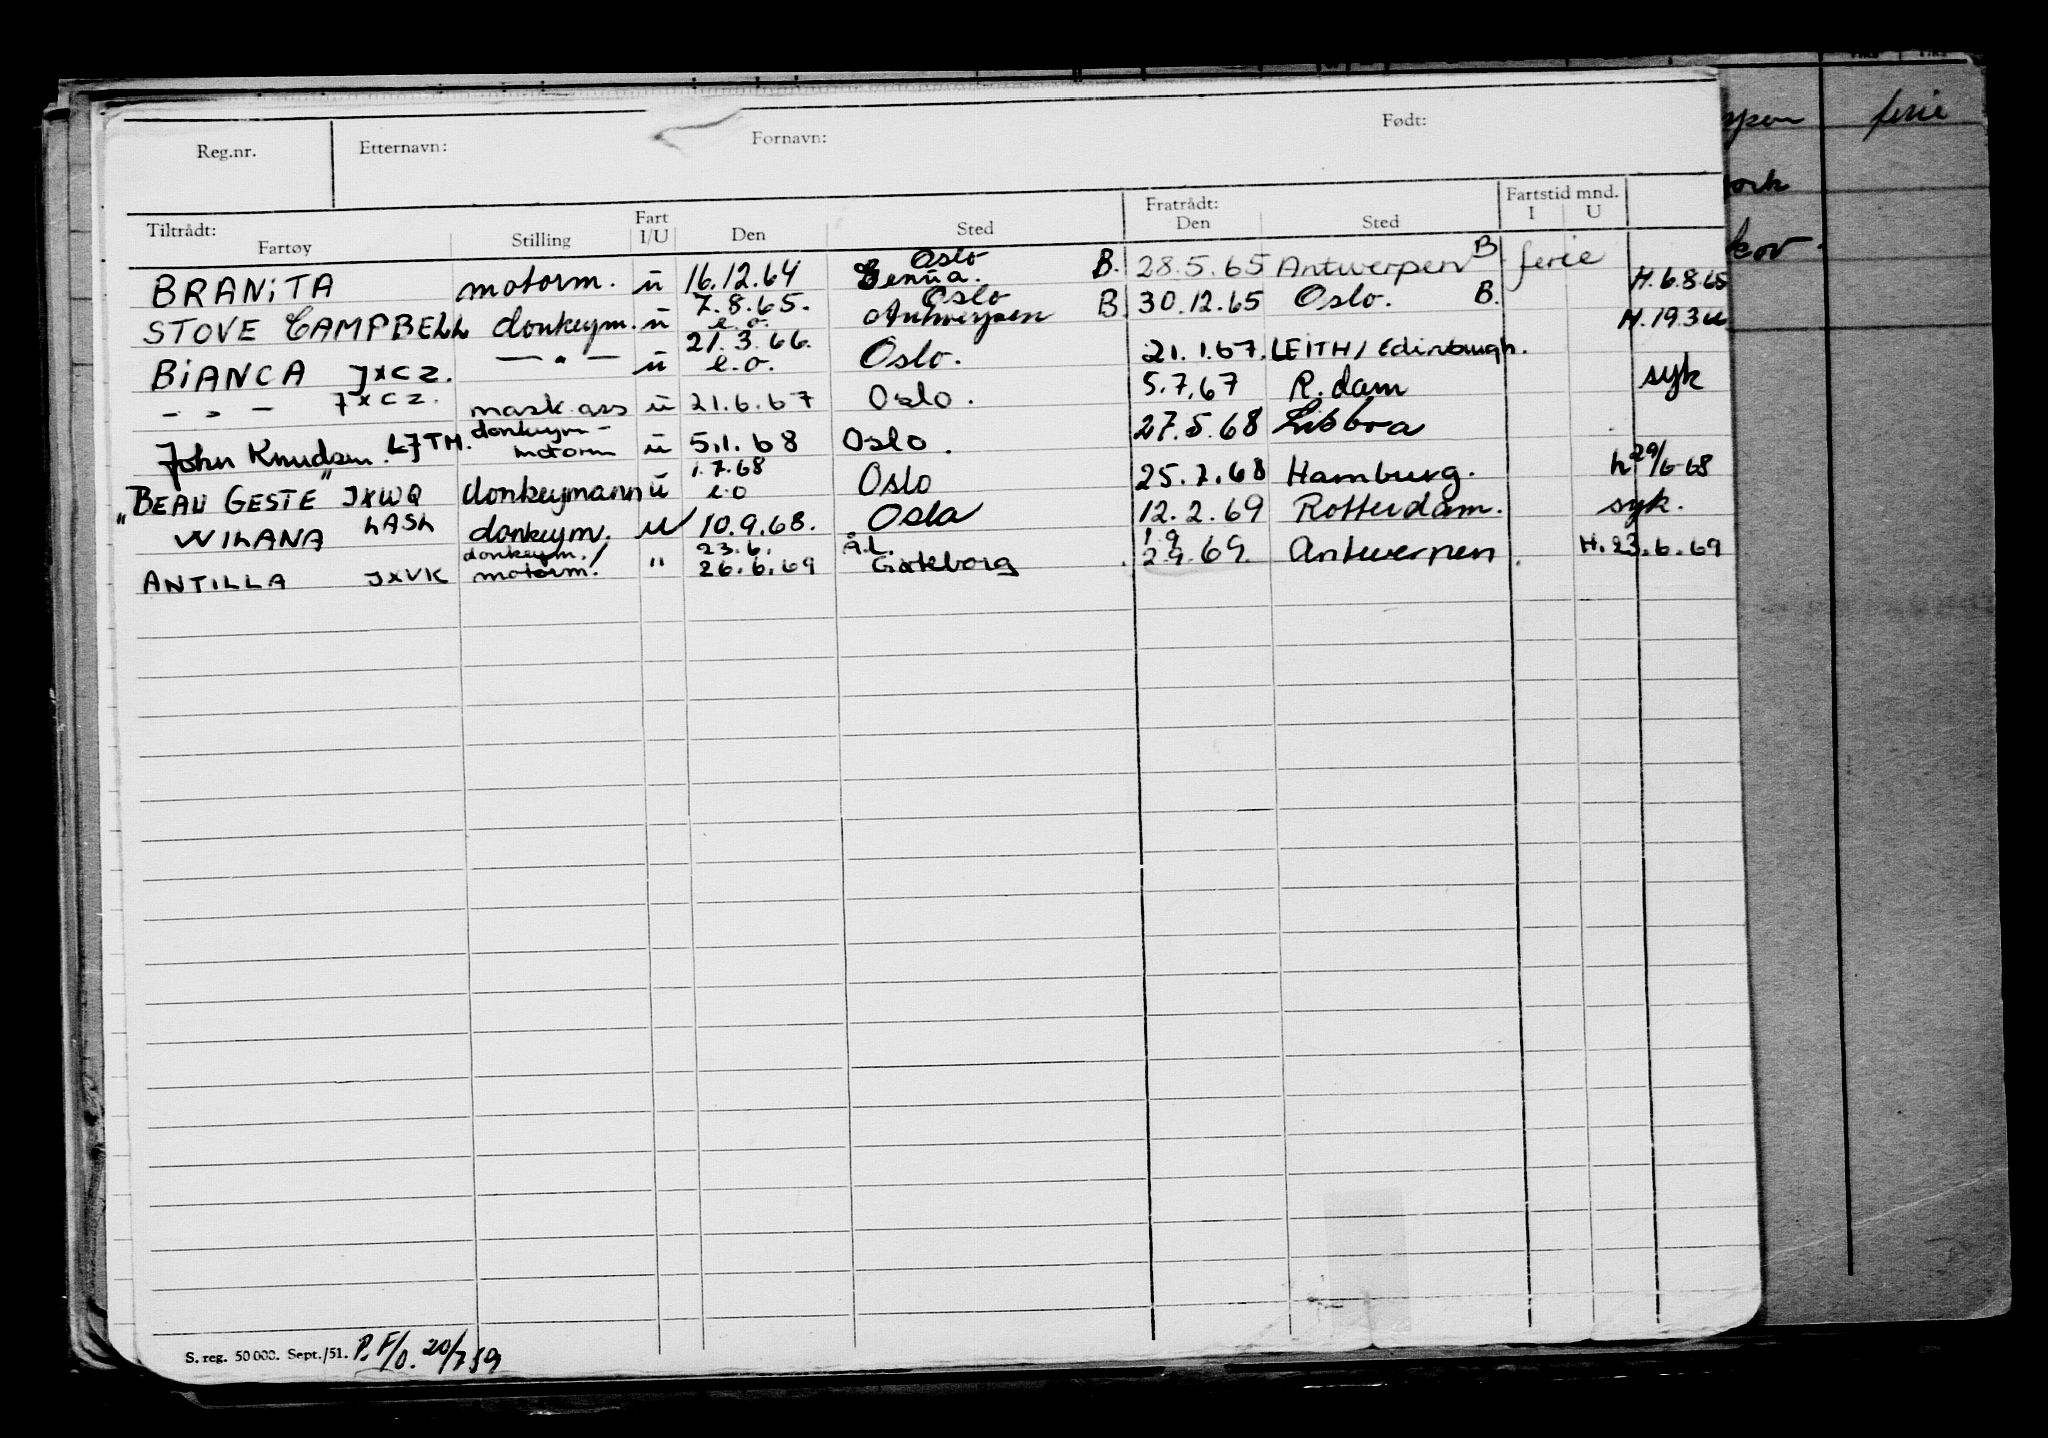 Reg.nr. Etternavn: Fornavn: Født:
Tiltrådt: Fartøy Stilling Fart I/U Den Sted Fratrådt: Den Sted Fartstid mnd. I U
BRANITA motorm. u 16.12.64 Oslo Genua. B. 28.5.65 Antwerpen B ferie H. 6.8.65
STOVE CAMPBELL donkeym. u 7.8.65. e.o. Oslo Antwerpen B 30.12.65 Oslo. B. H. 19.3
BIANCA JXCZ. — " — u 21.3.66. e.o. Oslo. 21.1.67. LEITH/Edinburgh.
- " - JXCZ. mask.ass u 21.6.67 Oslo. 5.7.67 R.dam syk
John Knudsen. LJTM. donkeym- motorm u 5.1.68 Oslo. 27.5.68 Lisboa
"BEAU GESTE" JXWQ donkeymann u 1.7.68 e.o Oslo 25.7.68 Hamburg. h 29/6-68
"WILANA LASL donkeym. u 10.9.68. Oslo 12.2.69 Rotterdam. syk.
ANTILLA JXVK donkeym./ motorm! " 23.6. 26.6.69 å.l. Gøteborg 1.9 2.9.69. Antwerpen H. 23.6.69
S. reg. 50 000. Sept./51. P.F/O. 20/7 59
ferie